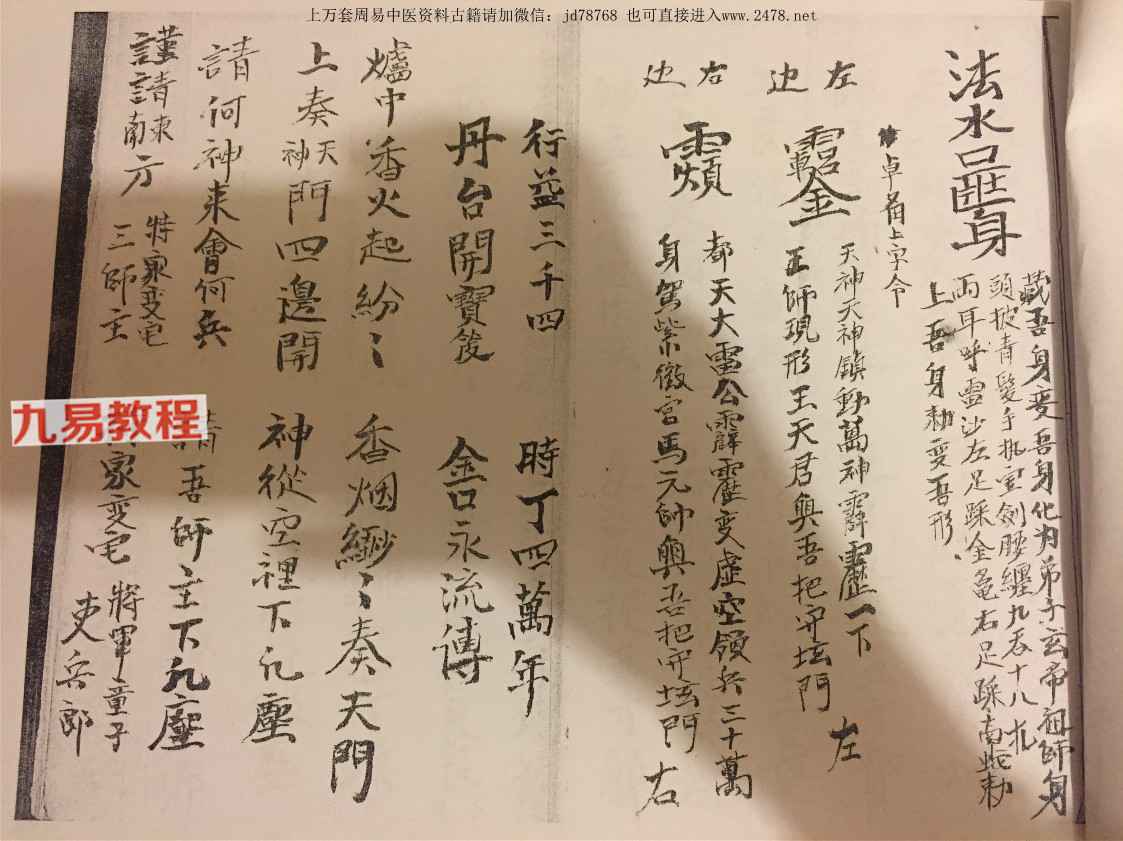 上万套周易中医资料古籍请加微信：jd78768 也可直接进入www.2478.net
法水 身
藏吾身变吾身化为弟子玄帝祖師身
頭披青髮手执宝剑腰纏九吞十八扎
两耳呼雷沙左足踩全龜右足踩南蛇勅
上吾身勅变吾形
卓 上字令
左边
天神天神鎮動萬神霹靂一下
正師現形王天君與吾把守垓門 左
右边
都天大雷公霹靂变虚空領兵三十萬
身駕紫微宮馬元帥與吾把守垓門 右
行益三千四 時丁四萬年
丹台開寶後 金口永流傳
爐中香火起紛〻 香烟緲〻奏天門
上奏天神門四邊開 神從空裡下凡塵
請何神来會何兵 請吾師主下凡塵
謹請東南方 特家变宅三師主 家变宅 將軍童子吏兵郎
九易教程